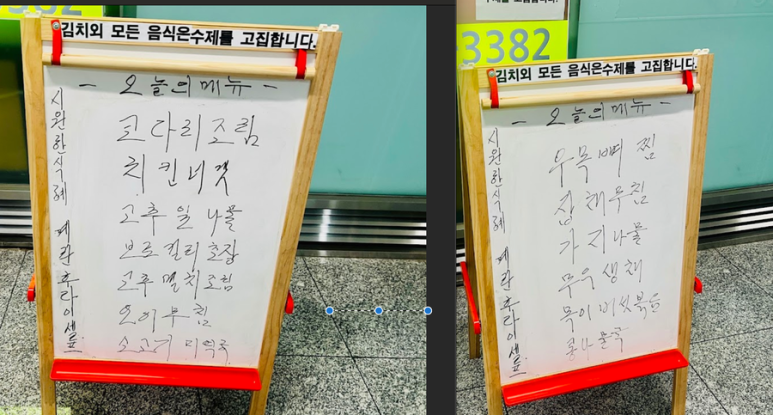 김치외 모든 음식은수제를 고집합니다.
- 오늘의메뉴 -
시원한식혜 계란후라이셀프
코다리조림
치킨너겟
고추잎나물
브로컬리초장
고추멸치조림
오이무침
소고기미역국
3382
김치외 모든 음식은수제를 고집합니다.
- 오늘의메뉴 -
시원한식혜 계란후라이셀프
우목뼈찜
잡채무침
가지나물
무우생채
목이버섯볶음
콩나물국